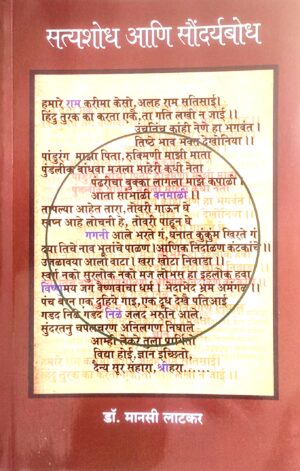 सत्यशोध आणि सौंदर्यबोध
हमारे राम करीमा केसो, अलह राम सतिसाई।
हिंदु तुरक का करता एकै, ता गति लखी न जाई।।
उंचनिंच कांही नेणे हा भगवंत।
तिष्ठे भाव भक्त देखोनिया।।
पांडुरंग माझा पिता, रुक्मिणी माझी माता
पुंडलीक बांधवा मजला माहेरी कधी नेता
पंढरीचा बुक्का लागला माझे कपाळी
आता सांभाळी वनमाळी
तापल्या आहेत तारा, तोवरी गाऊन घे
स्वप्न आहे लोचनी हे, तोवरी पाहून घे
गगनी आले भरते गं, घनात कुंकुम खिरते गं
दया तिचे नाव भूतांचे पाळण। आणिक निर्दाळण कंटकांचे
उजळावया आलो वाटा। खरा खोटा निवाडा।।
स्वर्ग नको सुरलोक नको मज लोभस हा इहलोक हवा
विष्णुमय जग वैष्णवांचा धर्म। भेदाभेद भ्रम अमंगळ
गडद निळे गडद निळे जलद भरुनि आले,
सुंदरतनु चपलचरण अनिलगण निघाले
आम्ही लेकरे तुला प्रार्थितो
विद्या होई, ज्ञान इच्छितो
दैन्य सुर संहारा, श्रीहरा......
डॉ. मानसी लाटकर